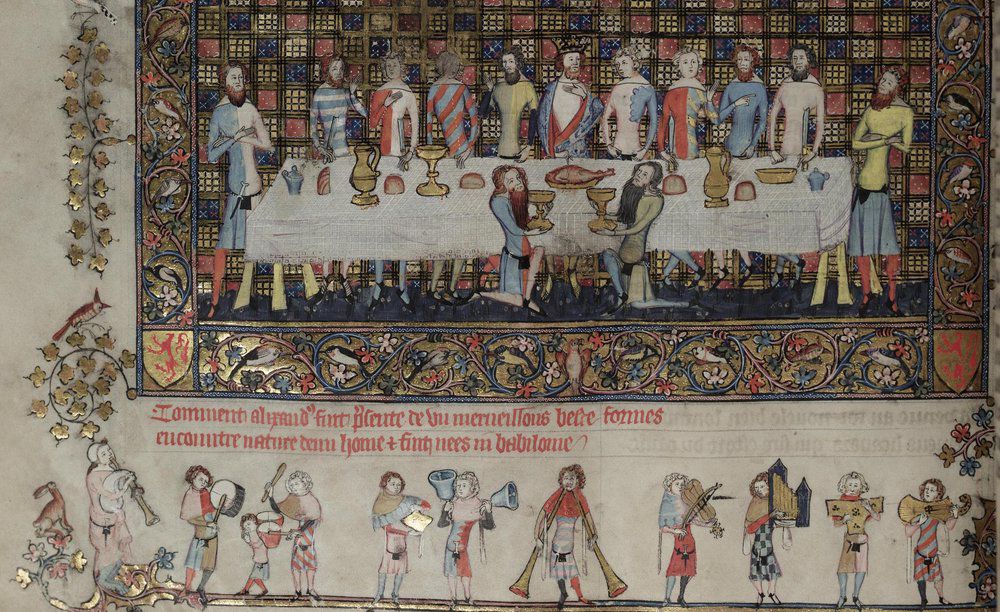 Comment alixandʳ fuit p̃sente de vn merueillous beste formes
encountre nature deun home ⁊ fuit nees in babiloine